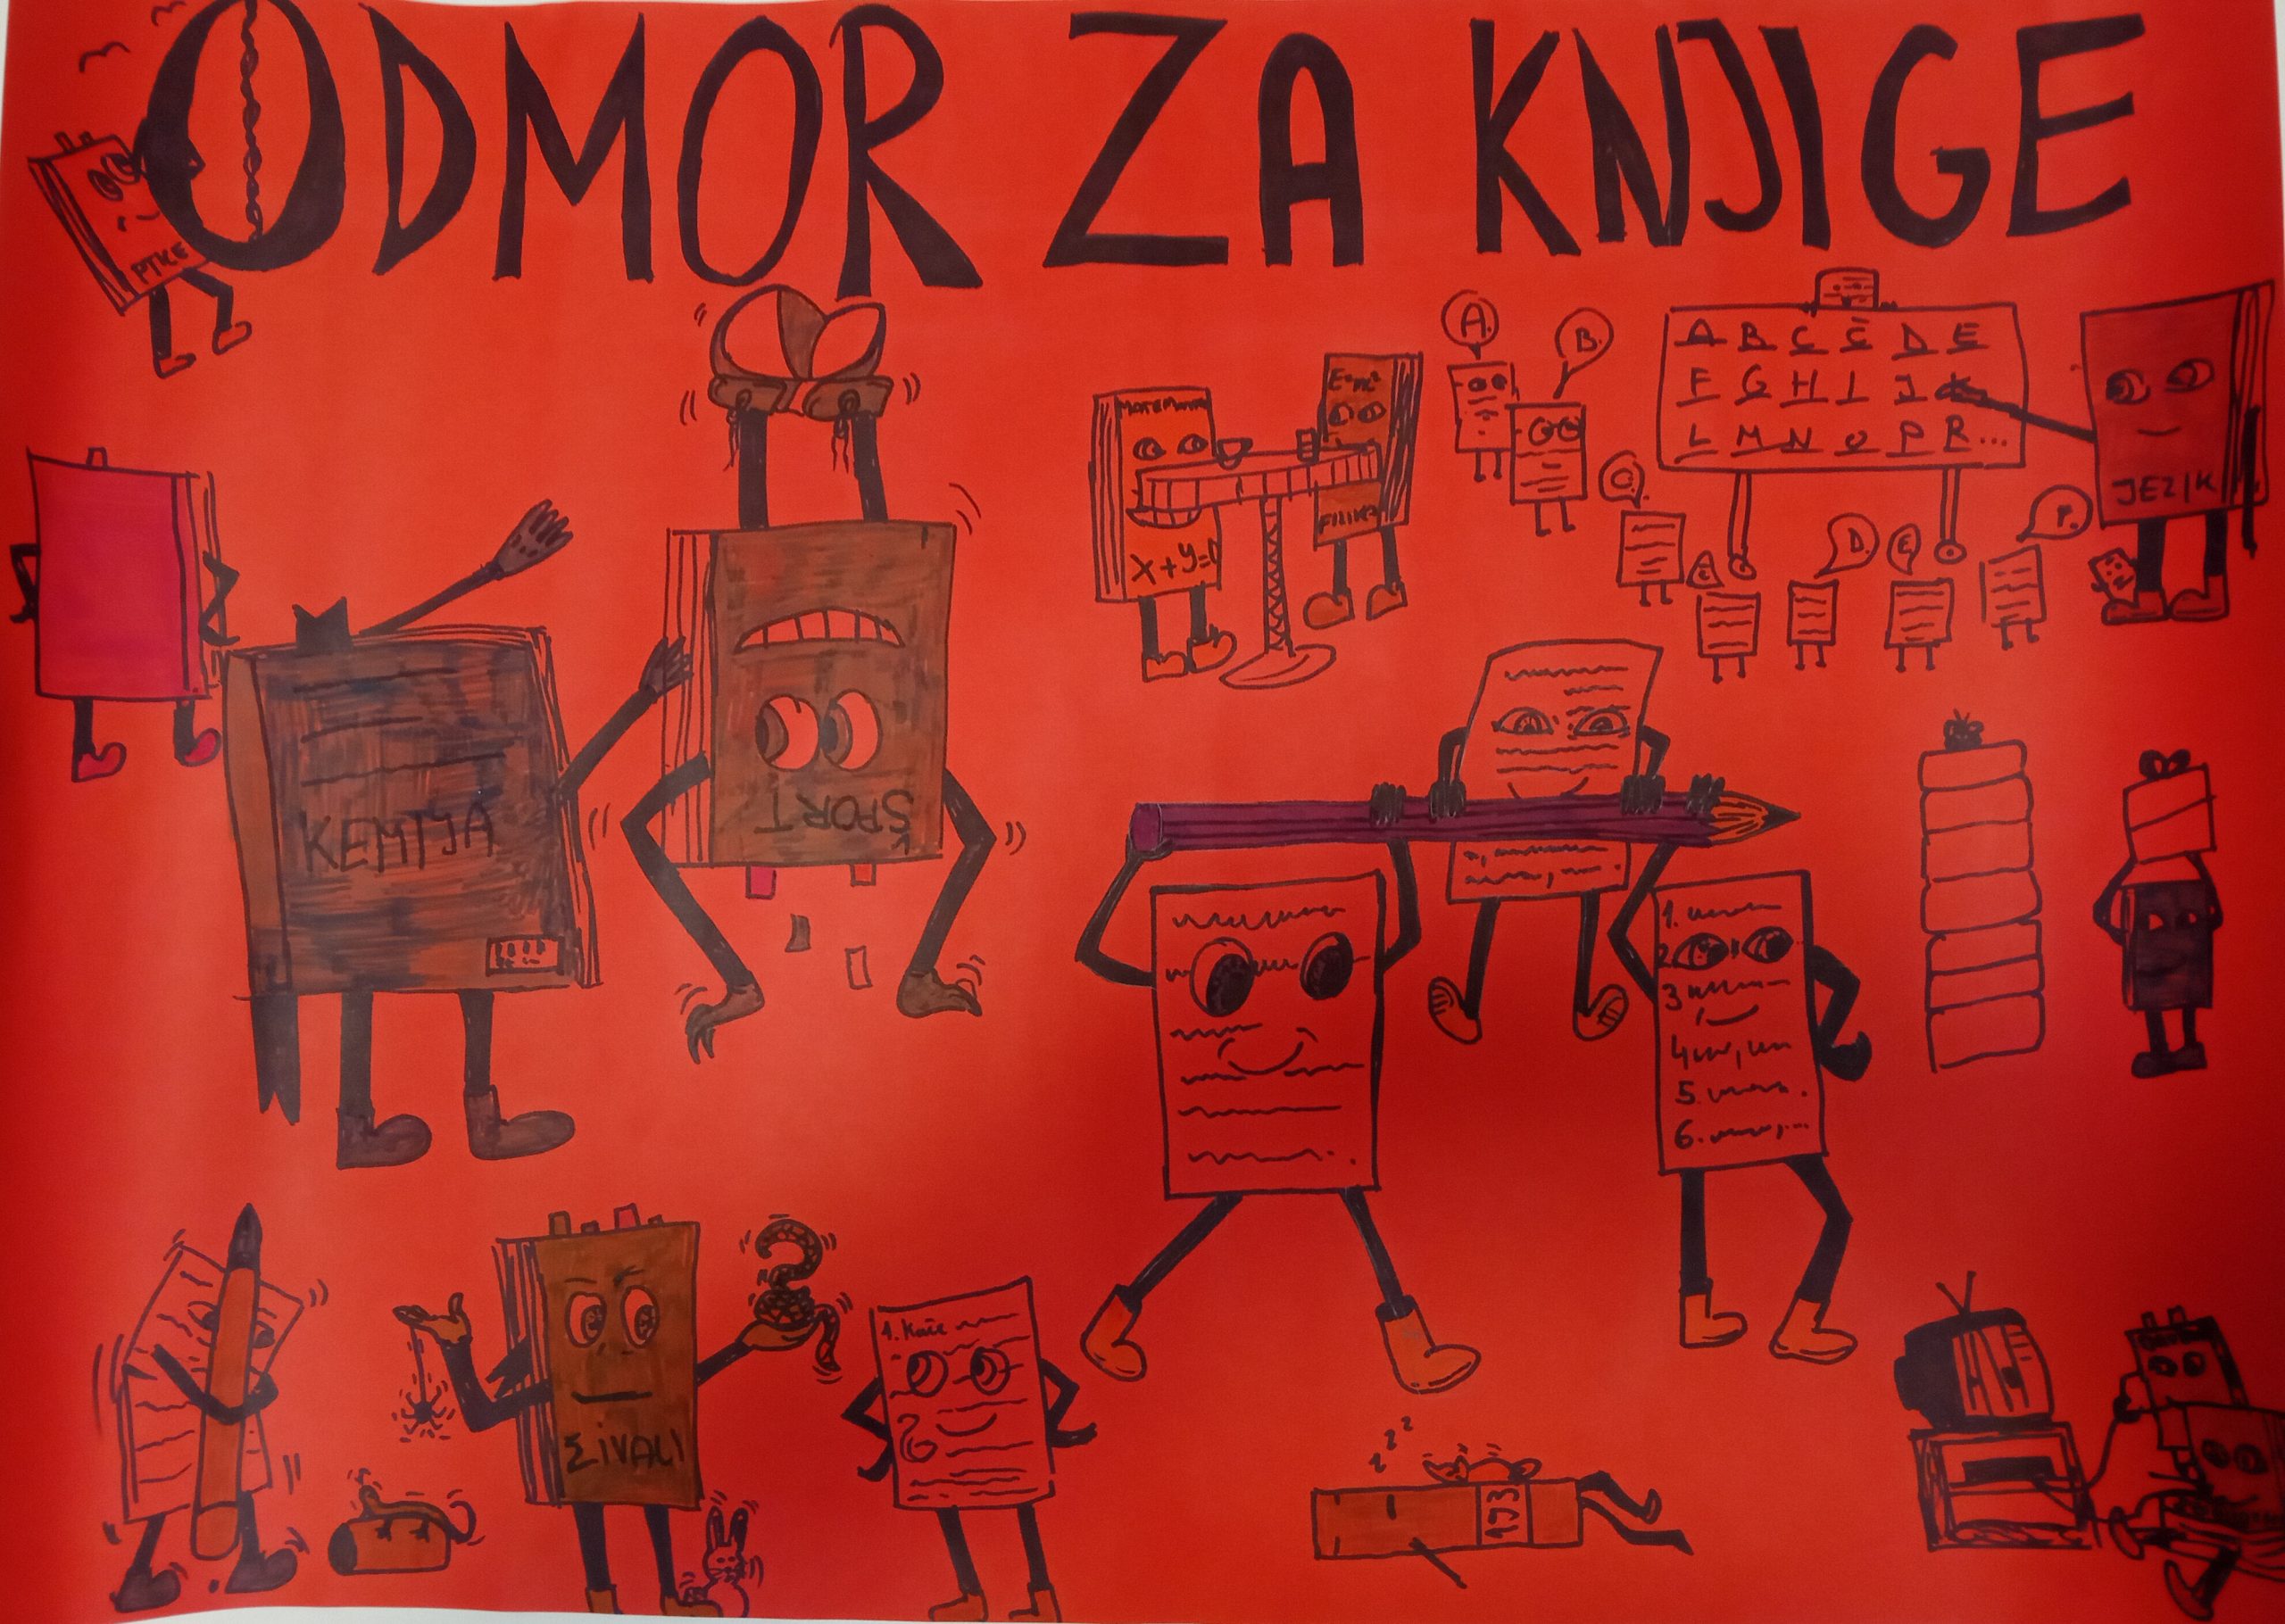 ODMOR ZA KNJIGE
PTICE
A.
B.
A B C Č D E
F G H I J K
L M N O P R...
MATEMATIKA
E=mc²
FIZIKA
X+Y=0
JEZIK
C.
Č
D.
E
F.
KEMIJA
ŠPORT
1.
2
3
4
5.
6.
ŽIVALI
1. Kače
z z z
173